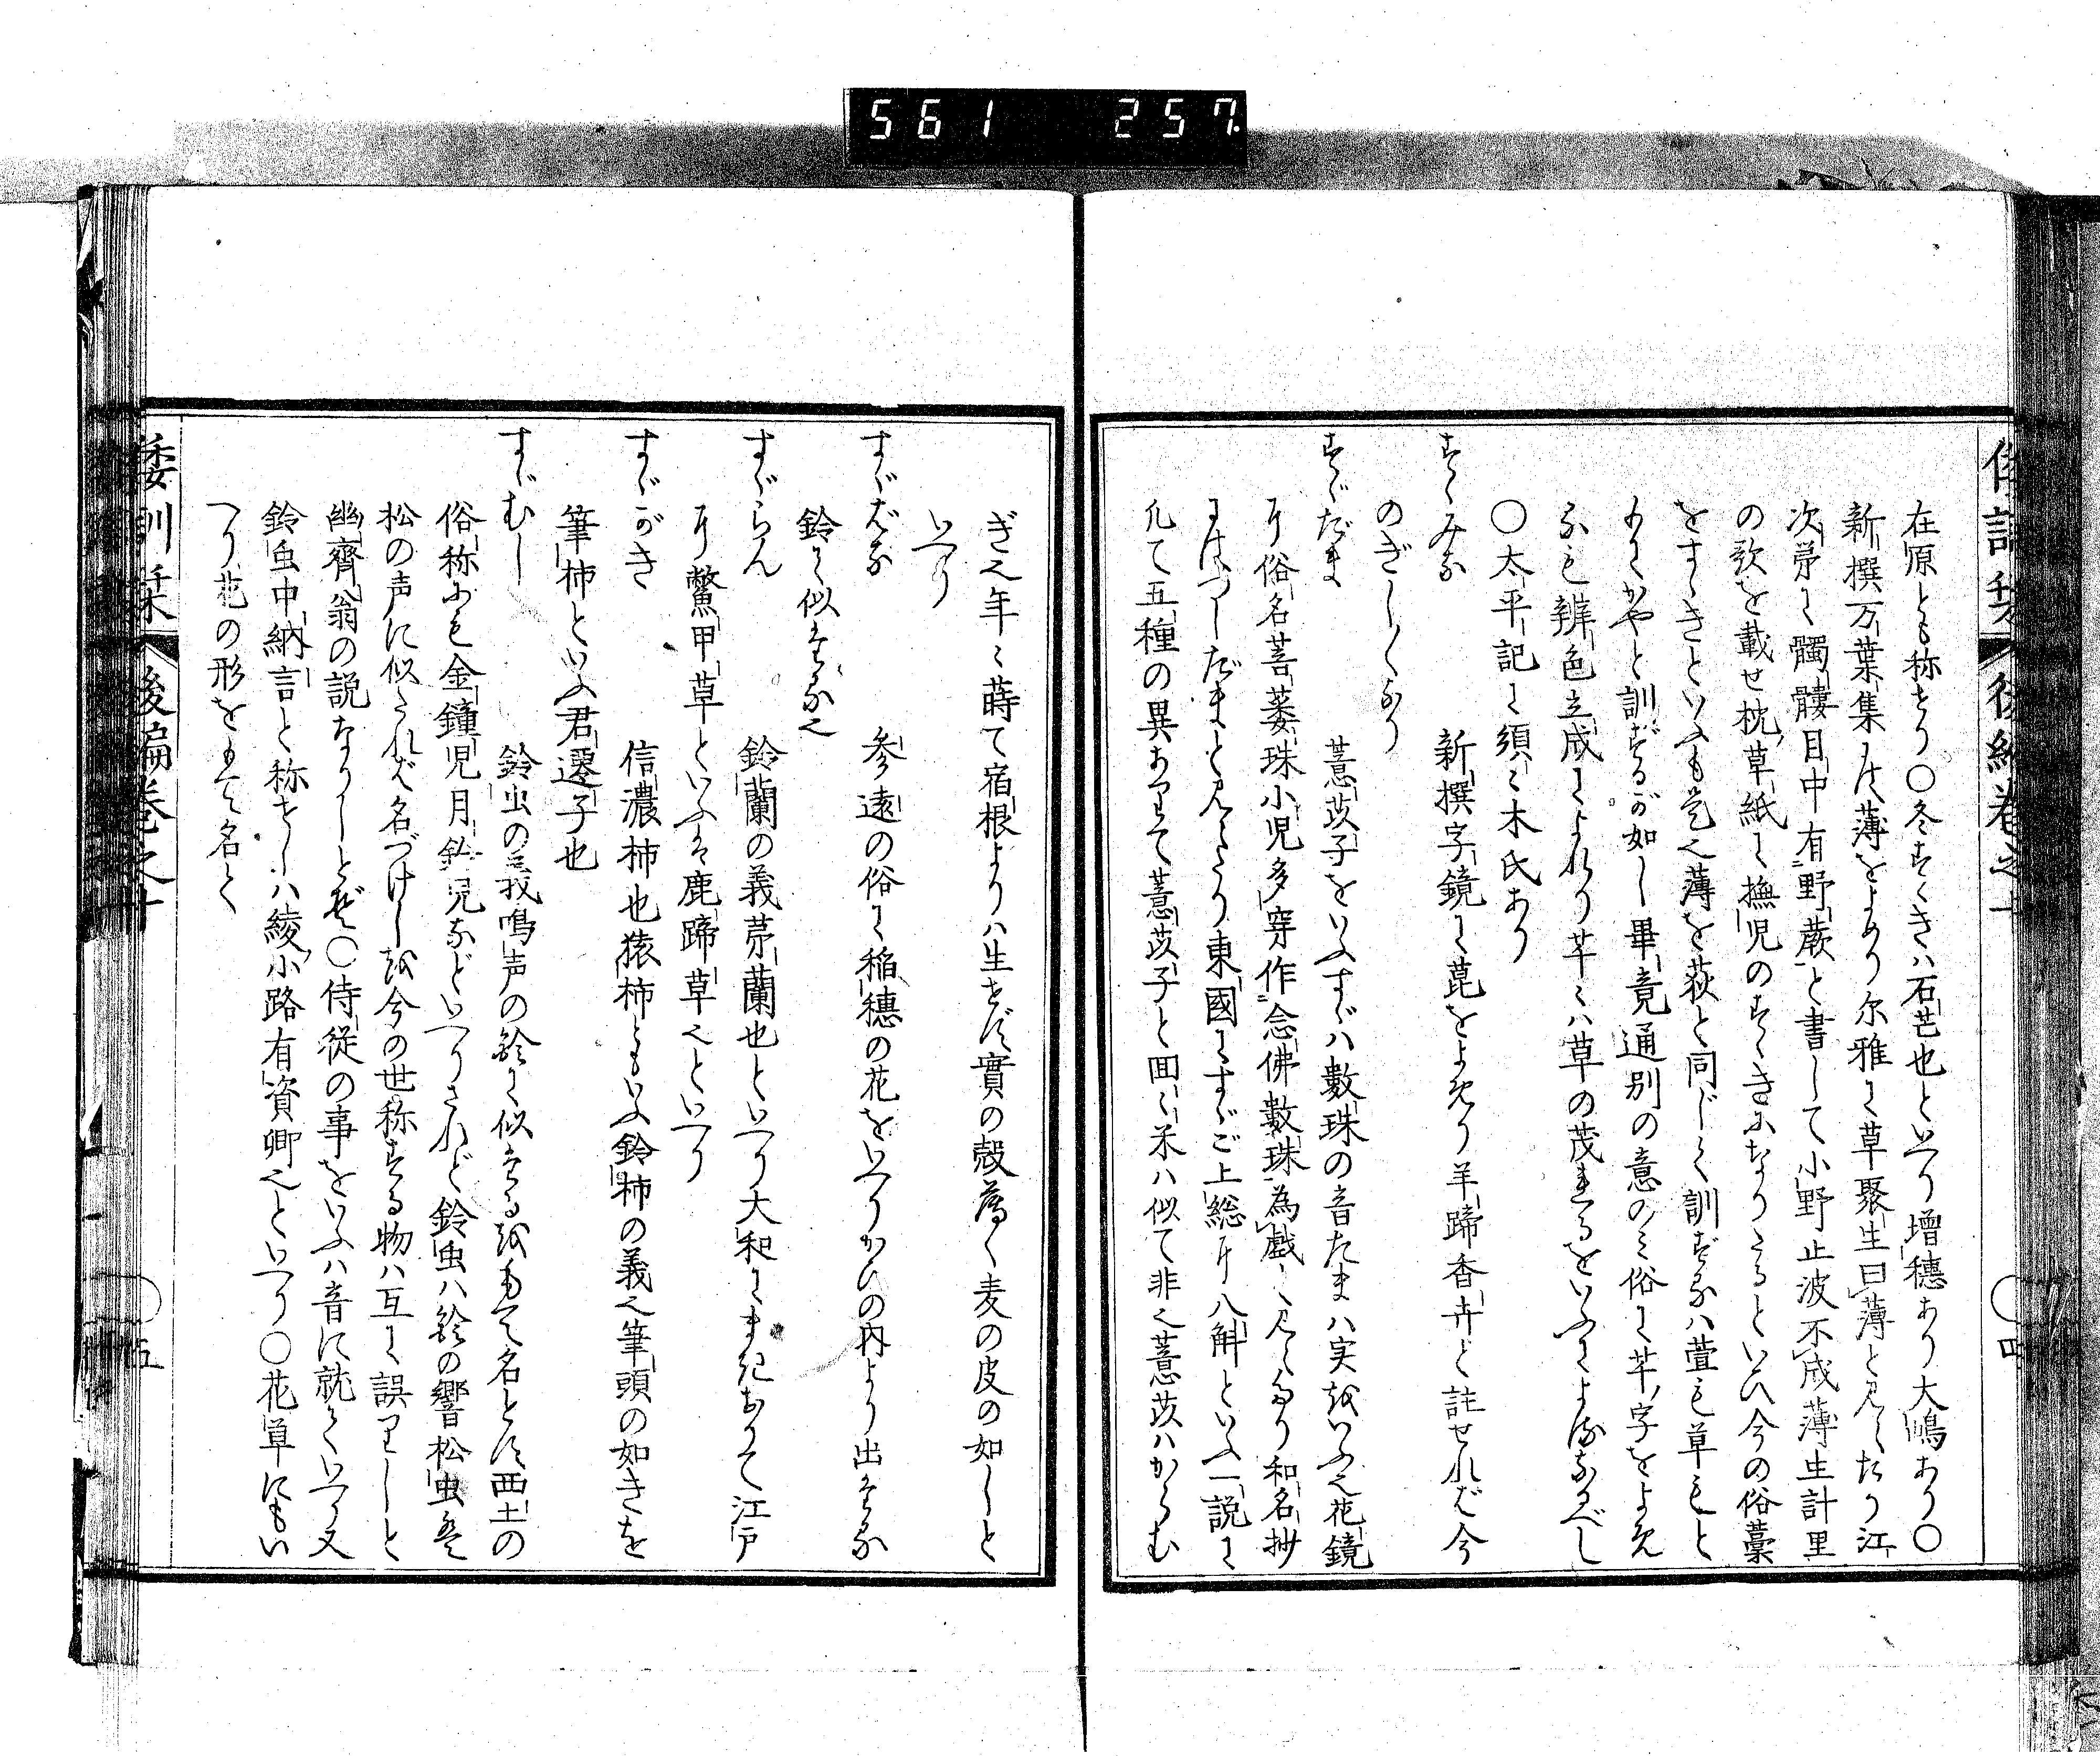 561 257
倭訓栞 後編巻之十
四
在原とも称せり○冬すゝきハ石芒也といへり増穂あり大嶋あり○
新撰万葉集に薄をよめり尓雅に草聚生曰薄と見えたり江
次第に髑髏目中有野蕨と書して小野止波不成薄生計里
の歌を載せ枕草紙に撫児のすゝきになりたるといひ今の俗藁
をすゝきといふも是也薄を荻と同じく訓ずるハ萱も草もと
もにかやと訓ずるが如し畢竟通別の意のミ俗に芊字をよめ
るも辨色立成によれり芊々ハ草の茂れるをいふによるなるべし
○太平記に須々木氏あり
すゝみな 新撰字鏡に莔をよめり羊蹄香卉と註せれば今
のぎし〳〵なり
すゞだま 薏苡子をいふすゞハ數珠の音たまハ実をいふ也花鏡
に俗名菩薏珠小児多穿作念佛數珠為戯と見えたり和名抄
にはつしだまと見えたり東國にすゞご上総に八斛といふ一説に
凡て五種の異ありて薏苡子と回々米ハ似て非也薏苡ハからむ
ぎ也年々蒔て宿根よりハ生せず實の殻薄く麦の皮の如しと
いへり
すゞばな 参遠の俗に稲穂の花をいへりかひの内より出たるな
鈴に似たる也
すゞらん 鈴蘭の義茅蘭也といへり大和にま紀ありて江戸
に鼈甲草といふは鹿蹄草也といへり
すゞがき 信濃柿也猿柿ともいふ鈴柿の義也筆頭の如きを
筆柿といふ君遷子也
すゞむし 鈴虫の義鳴声の鈴に似たるをもて名とす西土の
俗称にも金鐘児月鈴児などいへりされど鈴虫ハ鈴の響松虫は
松の声に似たれば名づけしを今の世称する物ハ互に誤りしと
幽齊翁の説なりしとぞ○侍従の事をいふハ音に就ていへり又
鈴虫中納言と称せしハ綾小路有資卿也といへり○花草にもい
へり花の形をもて名とく
倭訓栞 後編巻之十
五